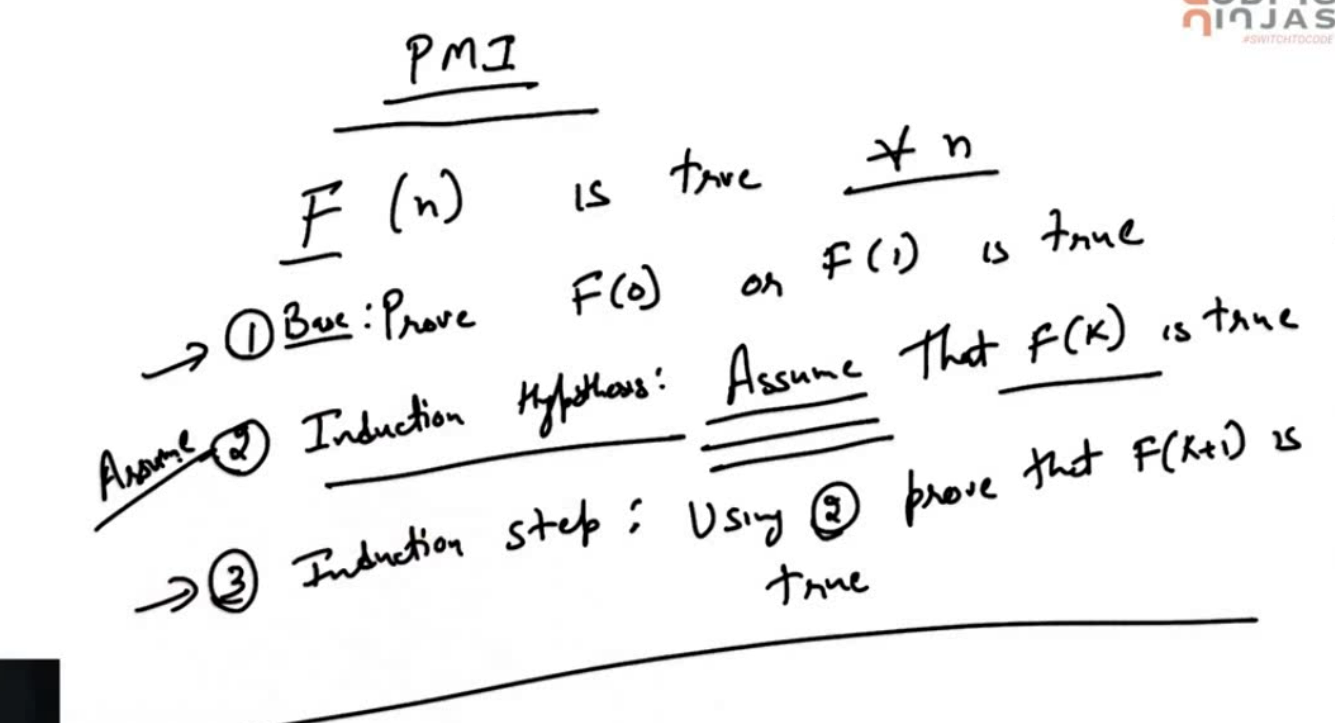 NINJAS
#SWITCHTOCODE
PMI
F (n) is true ∀ n
① Base: Prove F(0) or F(1) is true
Assume ② Induction Hypothesis: Assume that F(K) is true
③ Induction step: Using ② prove that F(K+1) is
true